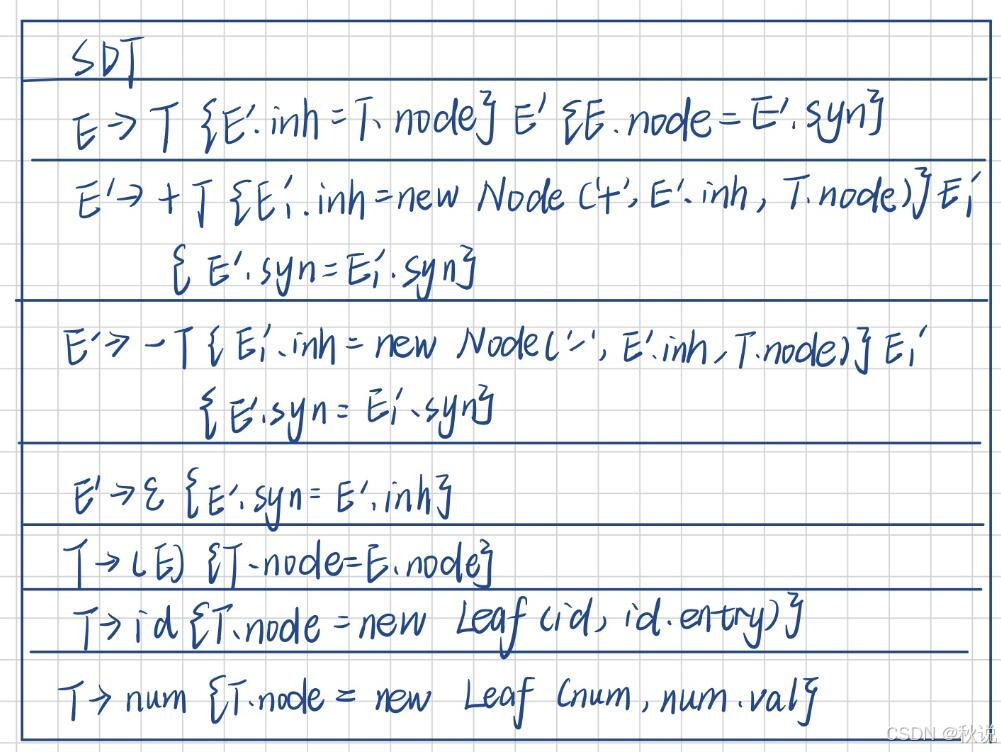 SDT
E → T {E'.inh = T.node} E' {E.node = E'.syn}
E' → + T {E₁'.inh = new Node ('+', E'.inh, T.node)} E₁'
{E'.syn = E₁'.syn}
E' → - T {E₁'.inh = new Node('-', E'.inh, T.node)} E₁'
{E'.syn = E₁'.syn}
E' → ε {E'.syn = E'.inh}
T → (E) {T.node = E.node}
T → id {T.node = new Leaf (id, id.entry)}
T → num {T.node = new Leaf (num, num.val}
CSDN @秋说